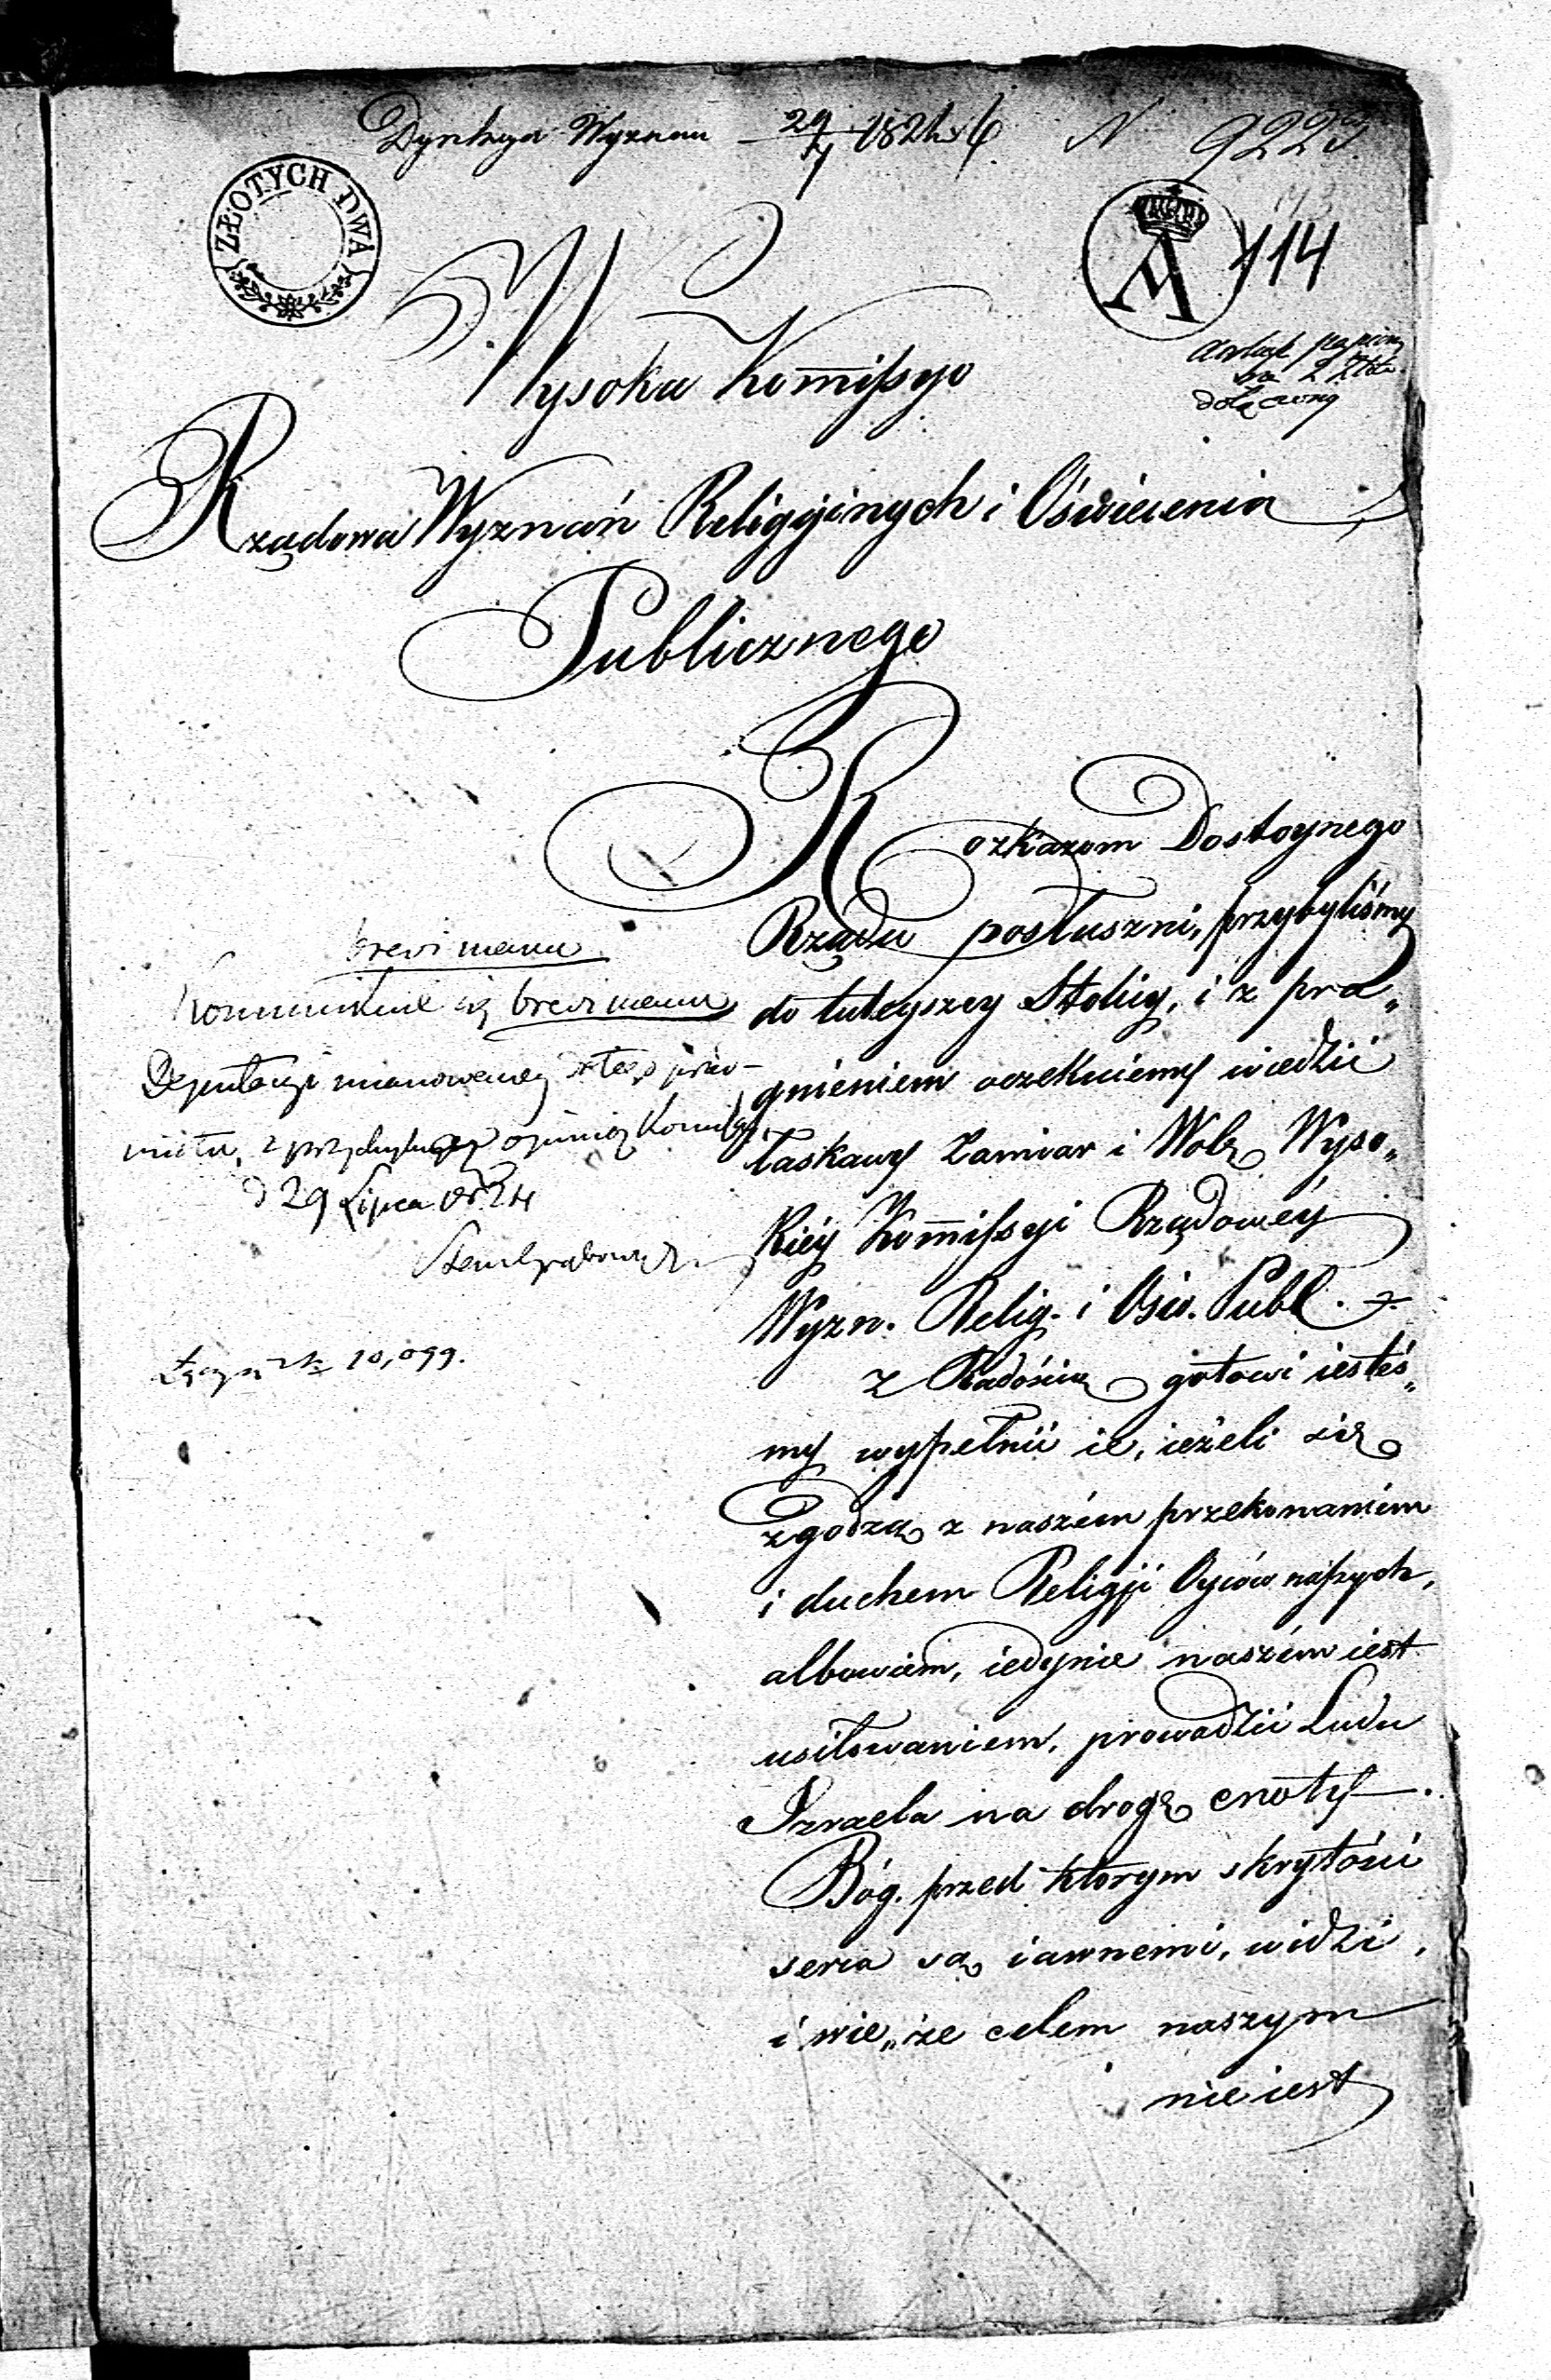 Dyrekcya Wyznan 29/7 1824 N 9223
ZŁOTYCH DWA
114
Arkusz papieru
na 2 Złote
dołączony
Wysoka Kommissyo
Rządowa Wyznań Religijinych i Oświecenia
Publicznego
Rozkazom Dostoynego
Rządu posłuszni, przybyliśmy
do tuteyszey Stolicy, i z pra„
gnieniem oczekuiemy wiedzić
łaskawy Zamiar i Wolę Wyso„
kiéy Kommissyi Rządowéy
Wyzn. Relig. i Ośw. Publ.
Z Radością gotowi iesteś„
my wypełnić ie, ieżeli się
zgodzą z naszém przekonaniem
i duchem Religji Oyców naszych,
albowiem, iedynie naszém iest
usiłowaniem, prowadzić Ludu
Izraela na drogę cnoty.
Bóg. przed ktorym skrytości
serca są iawnemi, widzi,
i wie„ że celem naszym
nie iest
brevi manu
Kommunikuie się brevi manu
Deputacyi mianowaney do tego przed-
miotu, z opinią
d 29 Lipca 1824
10,099.